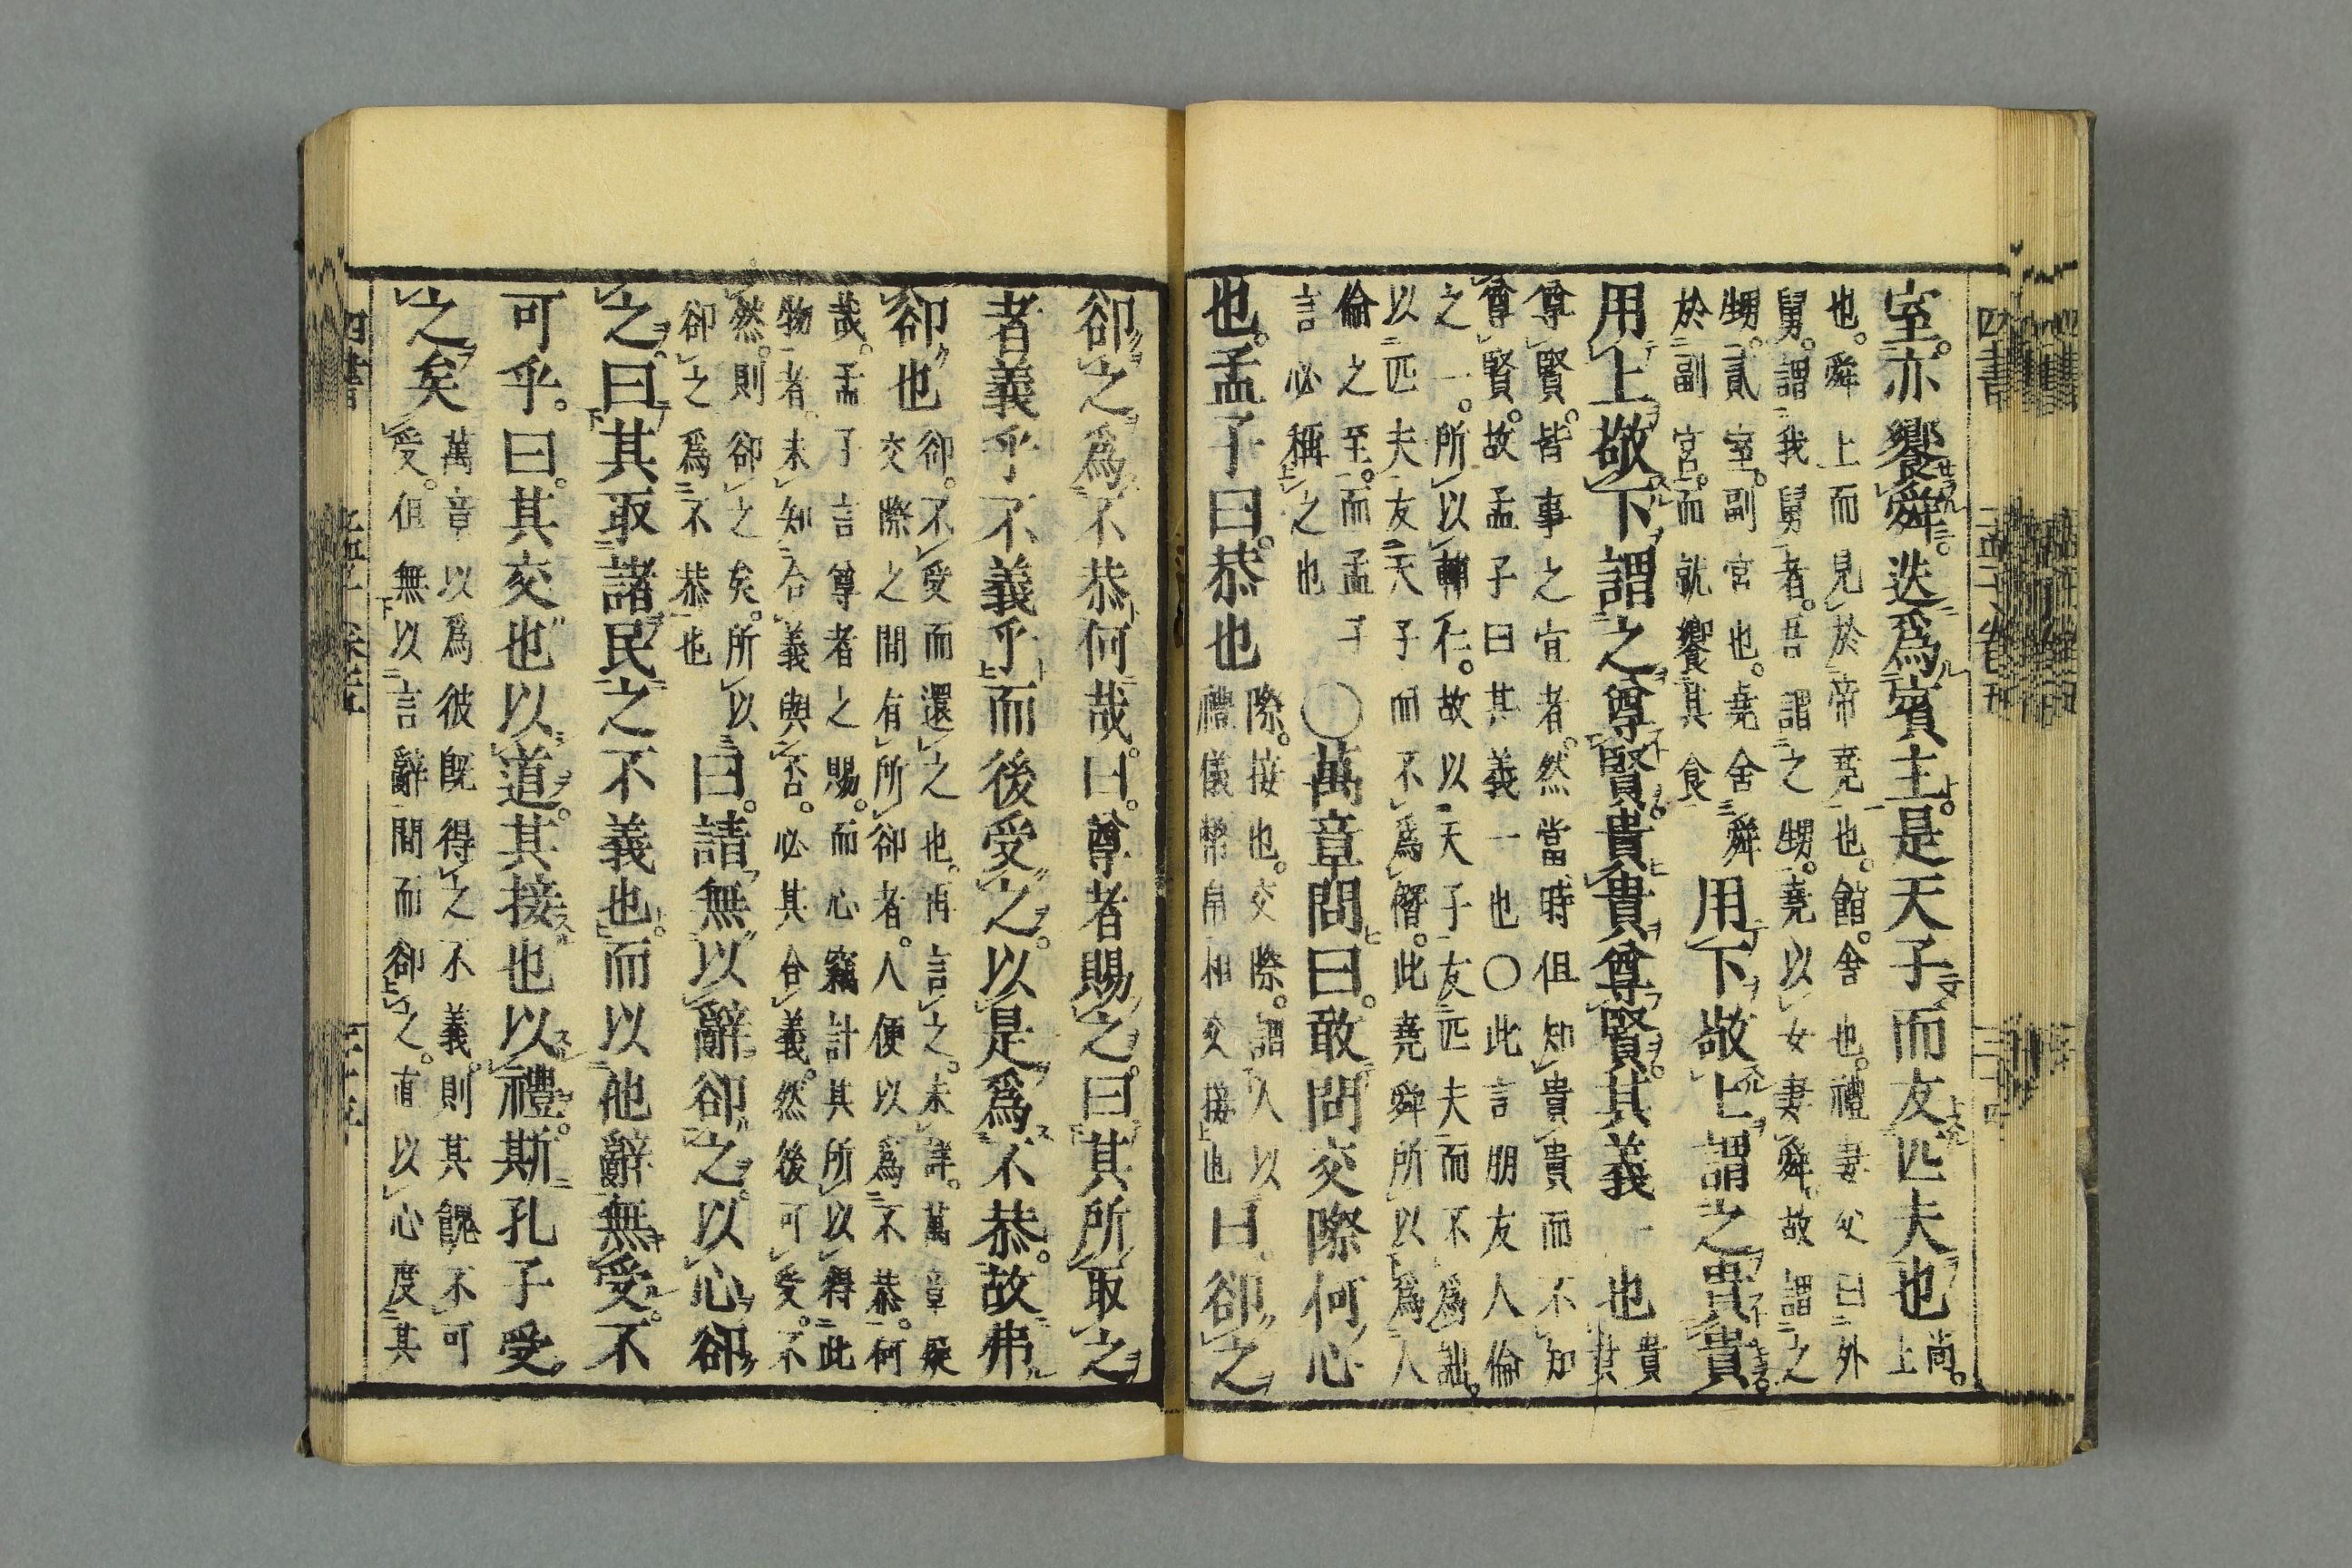 四書
孟子卷五
三十四
室。亦饗舜。迭爲賓主。是天子而友匹夫也
尚。
上
也。舜上而見於帝堯也。館。舍也。禮妻父曰外
舅。謂我舅者。吾謂之甥。堯以女妻舜。故謂之
甥。貳室。副宮也。堯舍舜
於副宮。而就饗其食
用下敬上謂之貴貴。
用上敬下謂之尊賢貴貴尊賢。其義一也
貴
貴
尊賢。皆事之宜者。然當時但知貴貴而不知
尊賢。故孟子曰其義一也○此言朋友人倫
之一。所以輔仁。故以天子友匹夫而不爲詘。
以匹夫友天子而不爲僭。此堯舜所以爲人
倫之至。而孟子
言必稱之也
○萬章問曰。敢問交際何心
也。孟子曰。恭也
際。接也。交際。謂人以
禮儀幣帛相交接也
曰。卻之
卻之爲不恭何哉。曰。尊者賜之。曰其所取之
者義乎不義乎而後受之。以是爲不恭。故弗
卻也
卻。不受而還之也。再言之。未詳。萬章疑
交際之間有所卻者。人便以爲不恭。何
哉。孟子言尊者之賜。而心竊計其所以得此
物者。未知合義與否。必其合義。然後可受。不
然。則卻之矣。所以
卻之爲不恭也
曰。請無以辭卻之。以心卻
之。曰其取諸民之不義也。而以他辭無受。不
可乎。曰。其交也以道。其接也以禮。斯孔子受
之矣
萬章以爲彼既得之不義。則其餽不可
受。但無以言辭間而卻之。直以心度其
四書
孟子
卷五